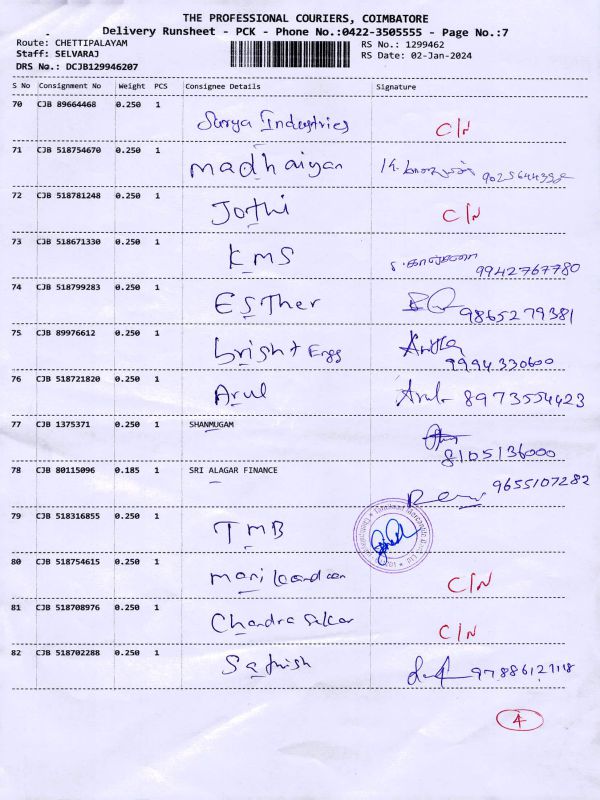 THE PROFESSIONAL COURIERS, COIMBATORE
Delivery Runsheet - PCK - Phone No.:0422-3505555 - Page No.:7
Route: CHETTIPALAYAM RS No.: 1299462
Staff: SELVARAJ RS Date: 02-Jan-2024
DRS No.: DCJB129946207
S No Consignment No Weight PCS Consignee Details Signature
70 CJB 89664468 0.250 1 Surya Industries C/N
71 CJB 518754670 0.250 1 Madhaiyan
72 CJB 518781248 0.250 1 Jothi C/N
73 CJB 518671330 0.250 1 KMS 9942767780
74 CJB 518799283 0.250 1 ESTher 9865279381
75 CJB 89976612 0.250 1 bright Engg 9994330600
76 CJB 518721820 0.250 1 Arul Arul 8973554423
77 CJB 1375371 0.250 1 SHANMUGAM 8105136000
78 CJB 80115096 0.185 1 SRI ALAGAR FINANCE 9655107282
79 CJB 518316855 0.250 1 TMB
80 CJB 518754615 0.250 1 Manikandan C/N
81 CJB 518708976 0.250 1 Chandra Sekar C/N
82 CJB 518702288 0.250 1 Sathish
4